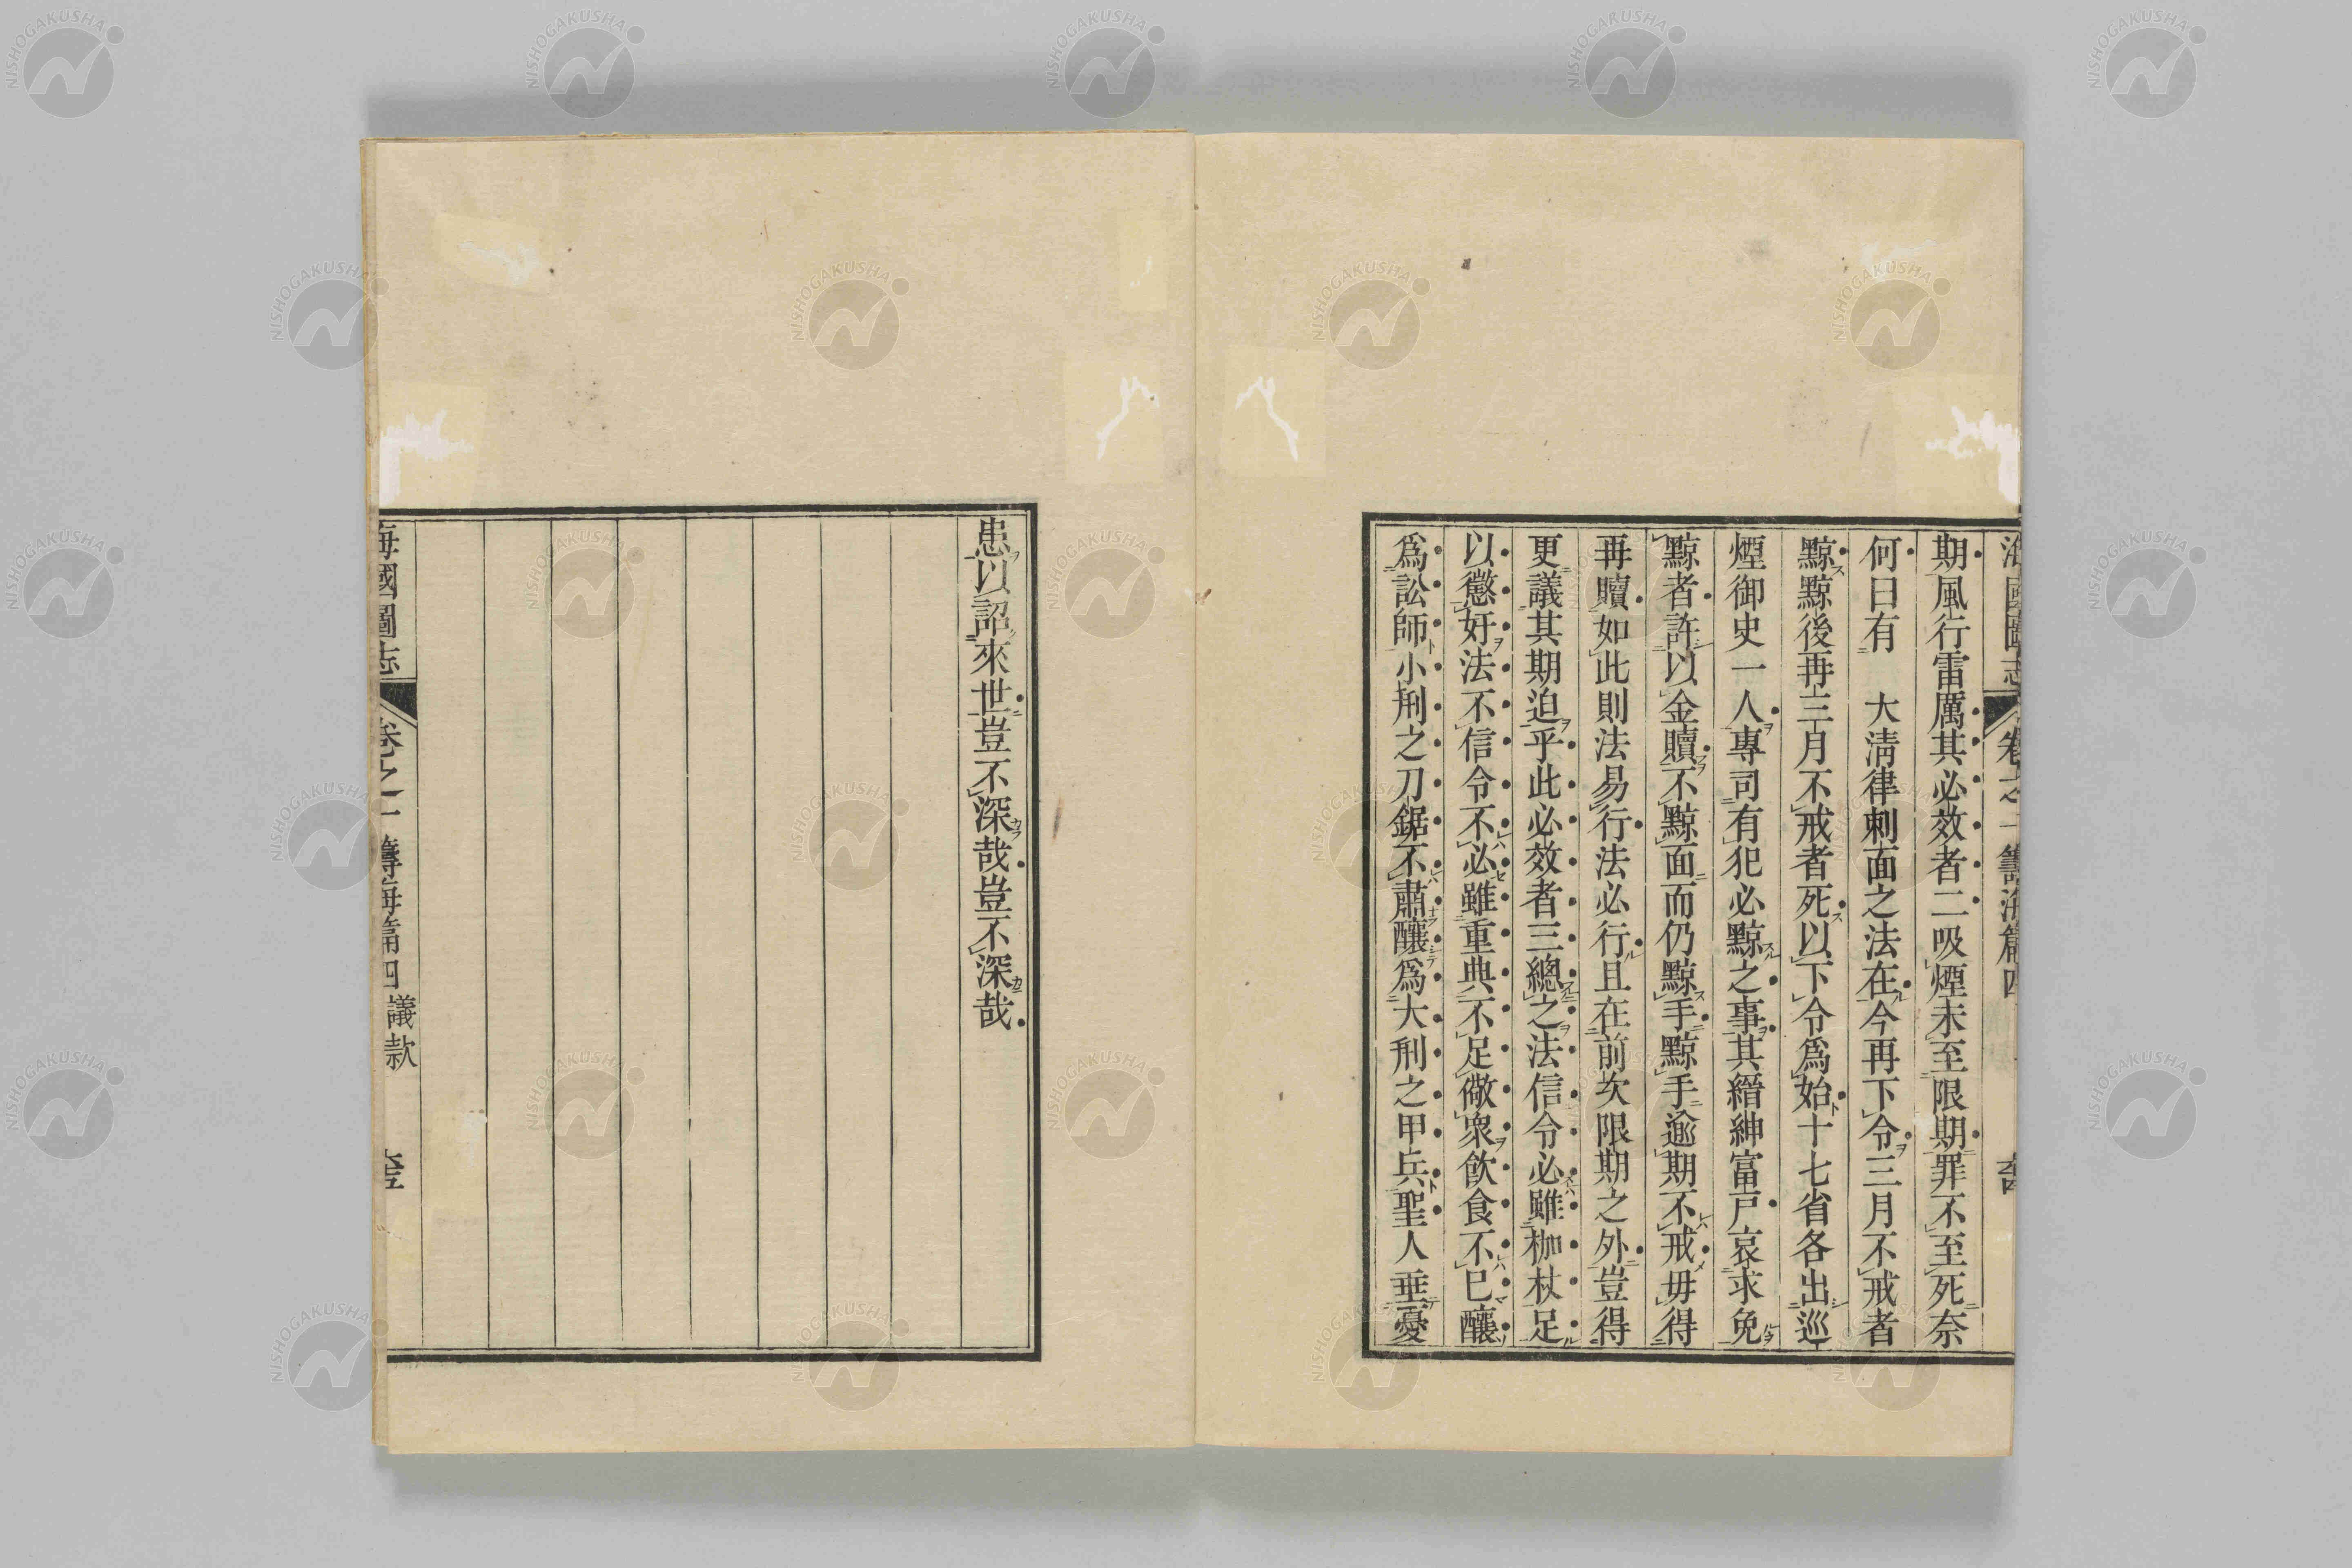 海國圖志 卷之一 籌海篇四
期風行雷厲其必效者二吸煙未至限期罪不至死奈
何曰有　大淸律刺面之法在今再下令三月不戒者
黥黥後再三月不戒者死以下令爲始十七省各出巡
煙御史一人專司有犯必黥之事其縉紳富戸哀求免
黥者許以金贖不黥面而仍黥手黥手逾期不戒毋得
再贖如此則法易行法必行且在前次限期之外豈得
更議其期迫乎此必效者三總之法信令必雖枷杖足
以懲奸法不信令不必雖重典不足儆衆飮食不已釀
爲訟師小刑之刀鋸不肅釀爲大刑之甲兵聖人垂憂
患以詔來世豈不深哉豈不深哉
海國圖志 卷之一 籌海篇四 議款
NISHOGAKUSHA